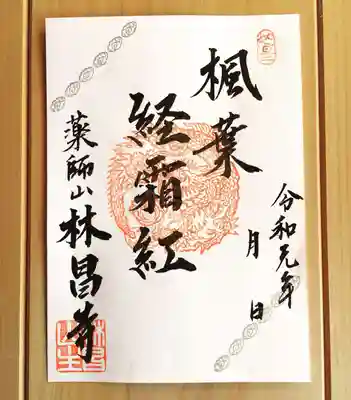 楓葉
経霜紅
令和元年
月 日
薬師山林昌寺